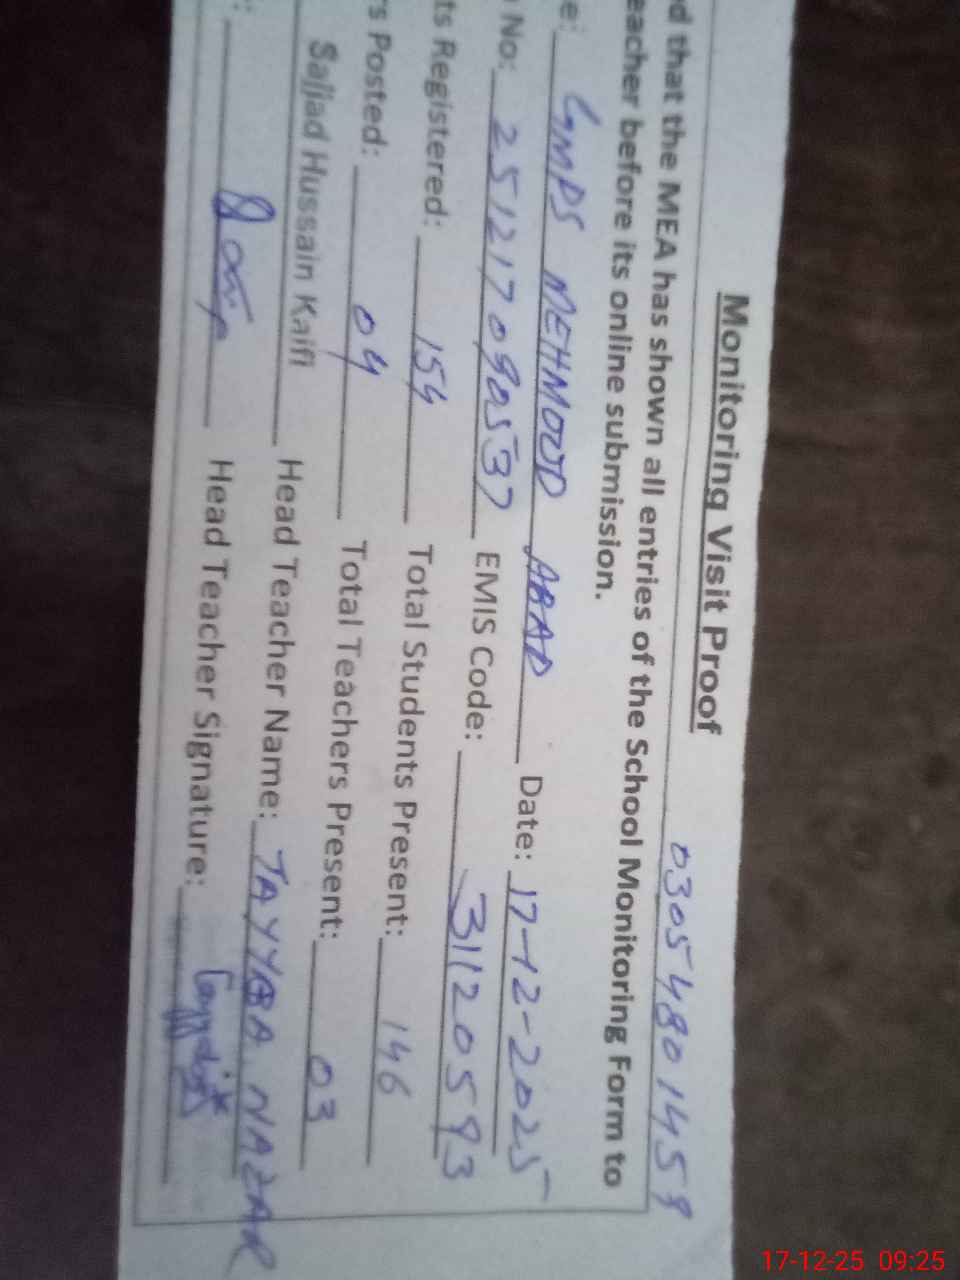 Monitoring Visit Proof
0305 480 1459
d that the MEA has shown all entries of the School Monitoring Form to
eacher before its online submission.
e: GMPS MEHMOOD ABAD Date: 17-12-2025
No: 251217090537 EMIS Code: 31120593
ts Registered: 154 Total Students Present: 146
rs Posted: 04 Total Teachers Present: 03
Sajjad Hussain Kaifi Head Teacher Name: TAYYBA NAZAR
Head Teacher Signature:
17-12-25 09:25